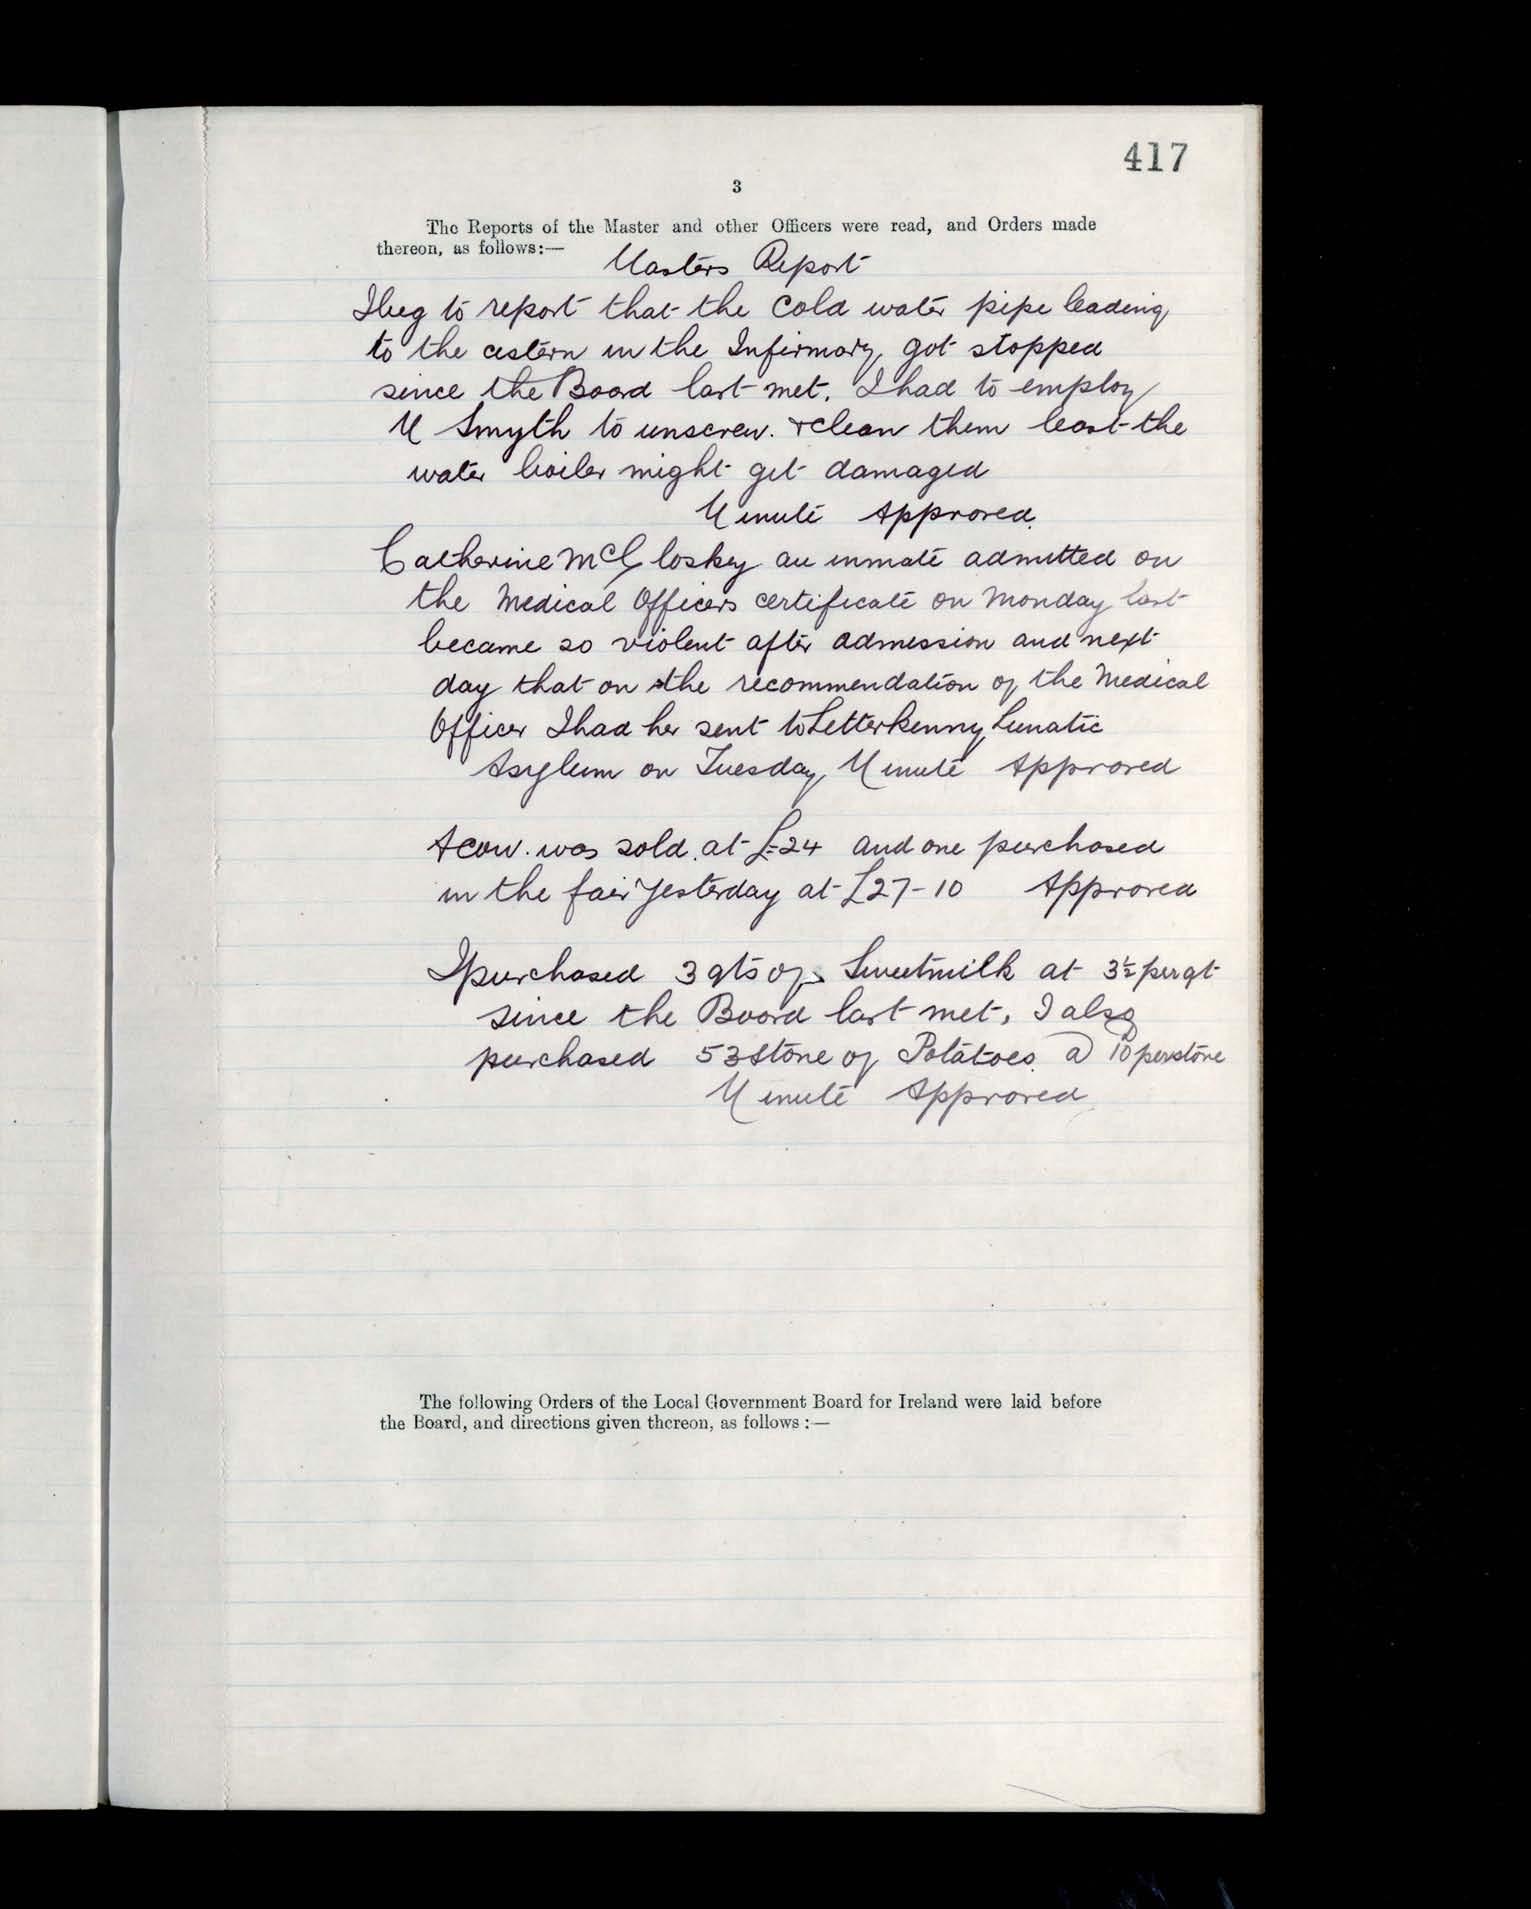 417
3
The Reports of the Master and other Officers were read, and Orders made
thereon, as follows:—
Masters Report
I beg to report that the cold water pipe leading
to the cistern in the Infirmary got stopped
since the Board last met. I had to employ
M Smyth to unscrew. & clean them least the
water boiler might get damaged
Minute Approved.
Catherine McCloskey an inmate admitted on
the Medical Officers certificate on Monday last
became so violent after admission and next
day that on the recommendation of the Medical
Officer I had her sent to Letterkenny Lunatic
Asylum on Tuesday, Minute Approved
A cow. was sold at £24 and one purchased
in the fair yesterday at £27-10 Approved
I purchased 3 qts of Sweetmilk at 3½ per qt
since the Board last met, I also
purchased 53 Stone of Potatoes @ 10D per stone
Minute Approved
The following Orders of the Local Government Board for Ireland were laid before
the Board, and directions given thereon, as follows :—